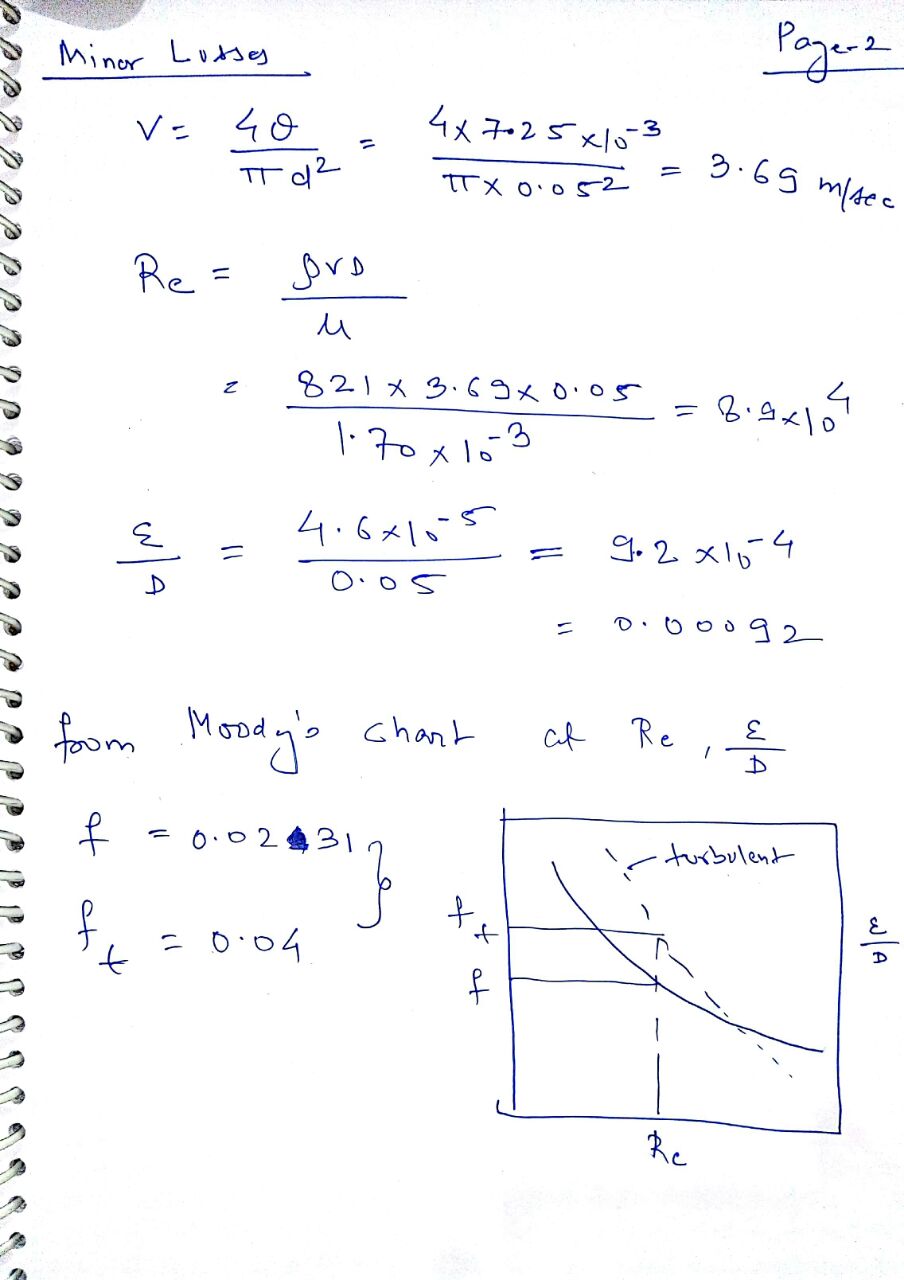 Minor Losses
Page-2
V = 4Q / πd² = 4 x 7.25 x 10⁻³ / π x 0.05² = 3.69 m/sec
Re = ρVD / μ
= 821 x 3.69 x 0.05 / 1.70 x 10⁻³ = 8.9 x 10⁴
ε / D = 4.6 x 10⁻⁵ / 0.05 = 9.2 x 10⁻⁴
= 0.00092
from Moody's chart at Re, ε / D
f = 0.02 31 }
f_t = 0.04
turbulent
f_t
f
ε / D
Re